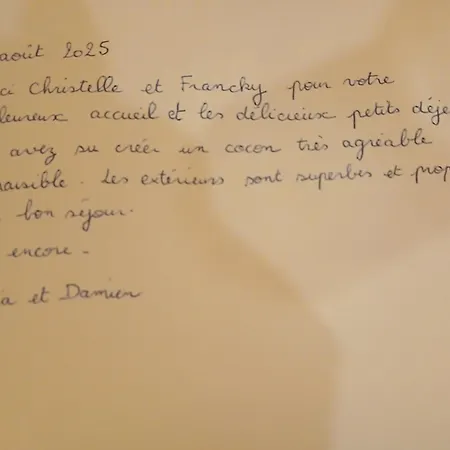 août 2025
ci Christelle et Francky pour votre
leureux accueil et les délicieux petits déje
avez su créer un cocon très agréable
paisible. Les extérieurs sont superbes et prop
bon séjour.
encore.
a et Damien